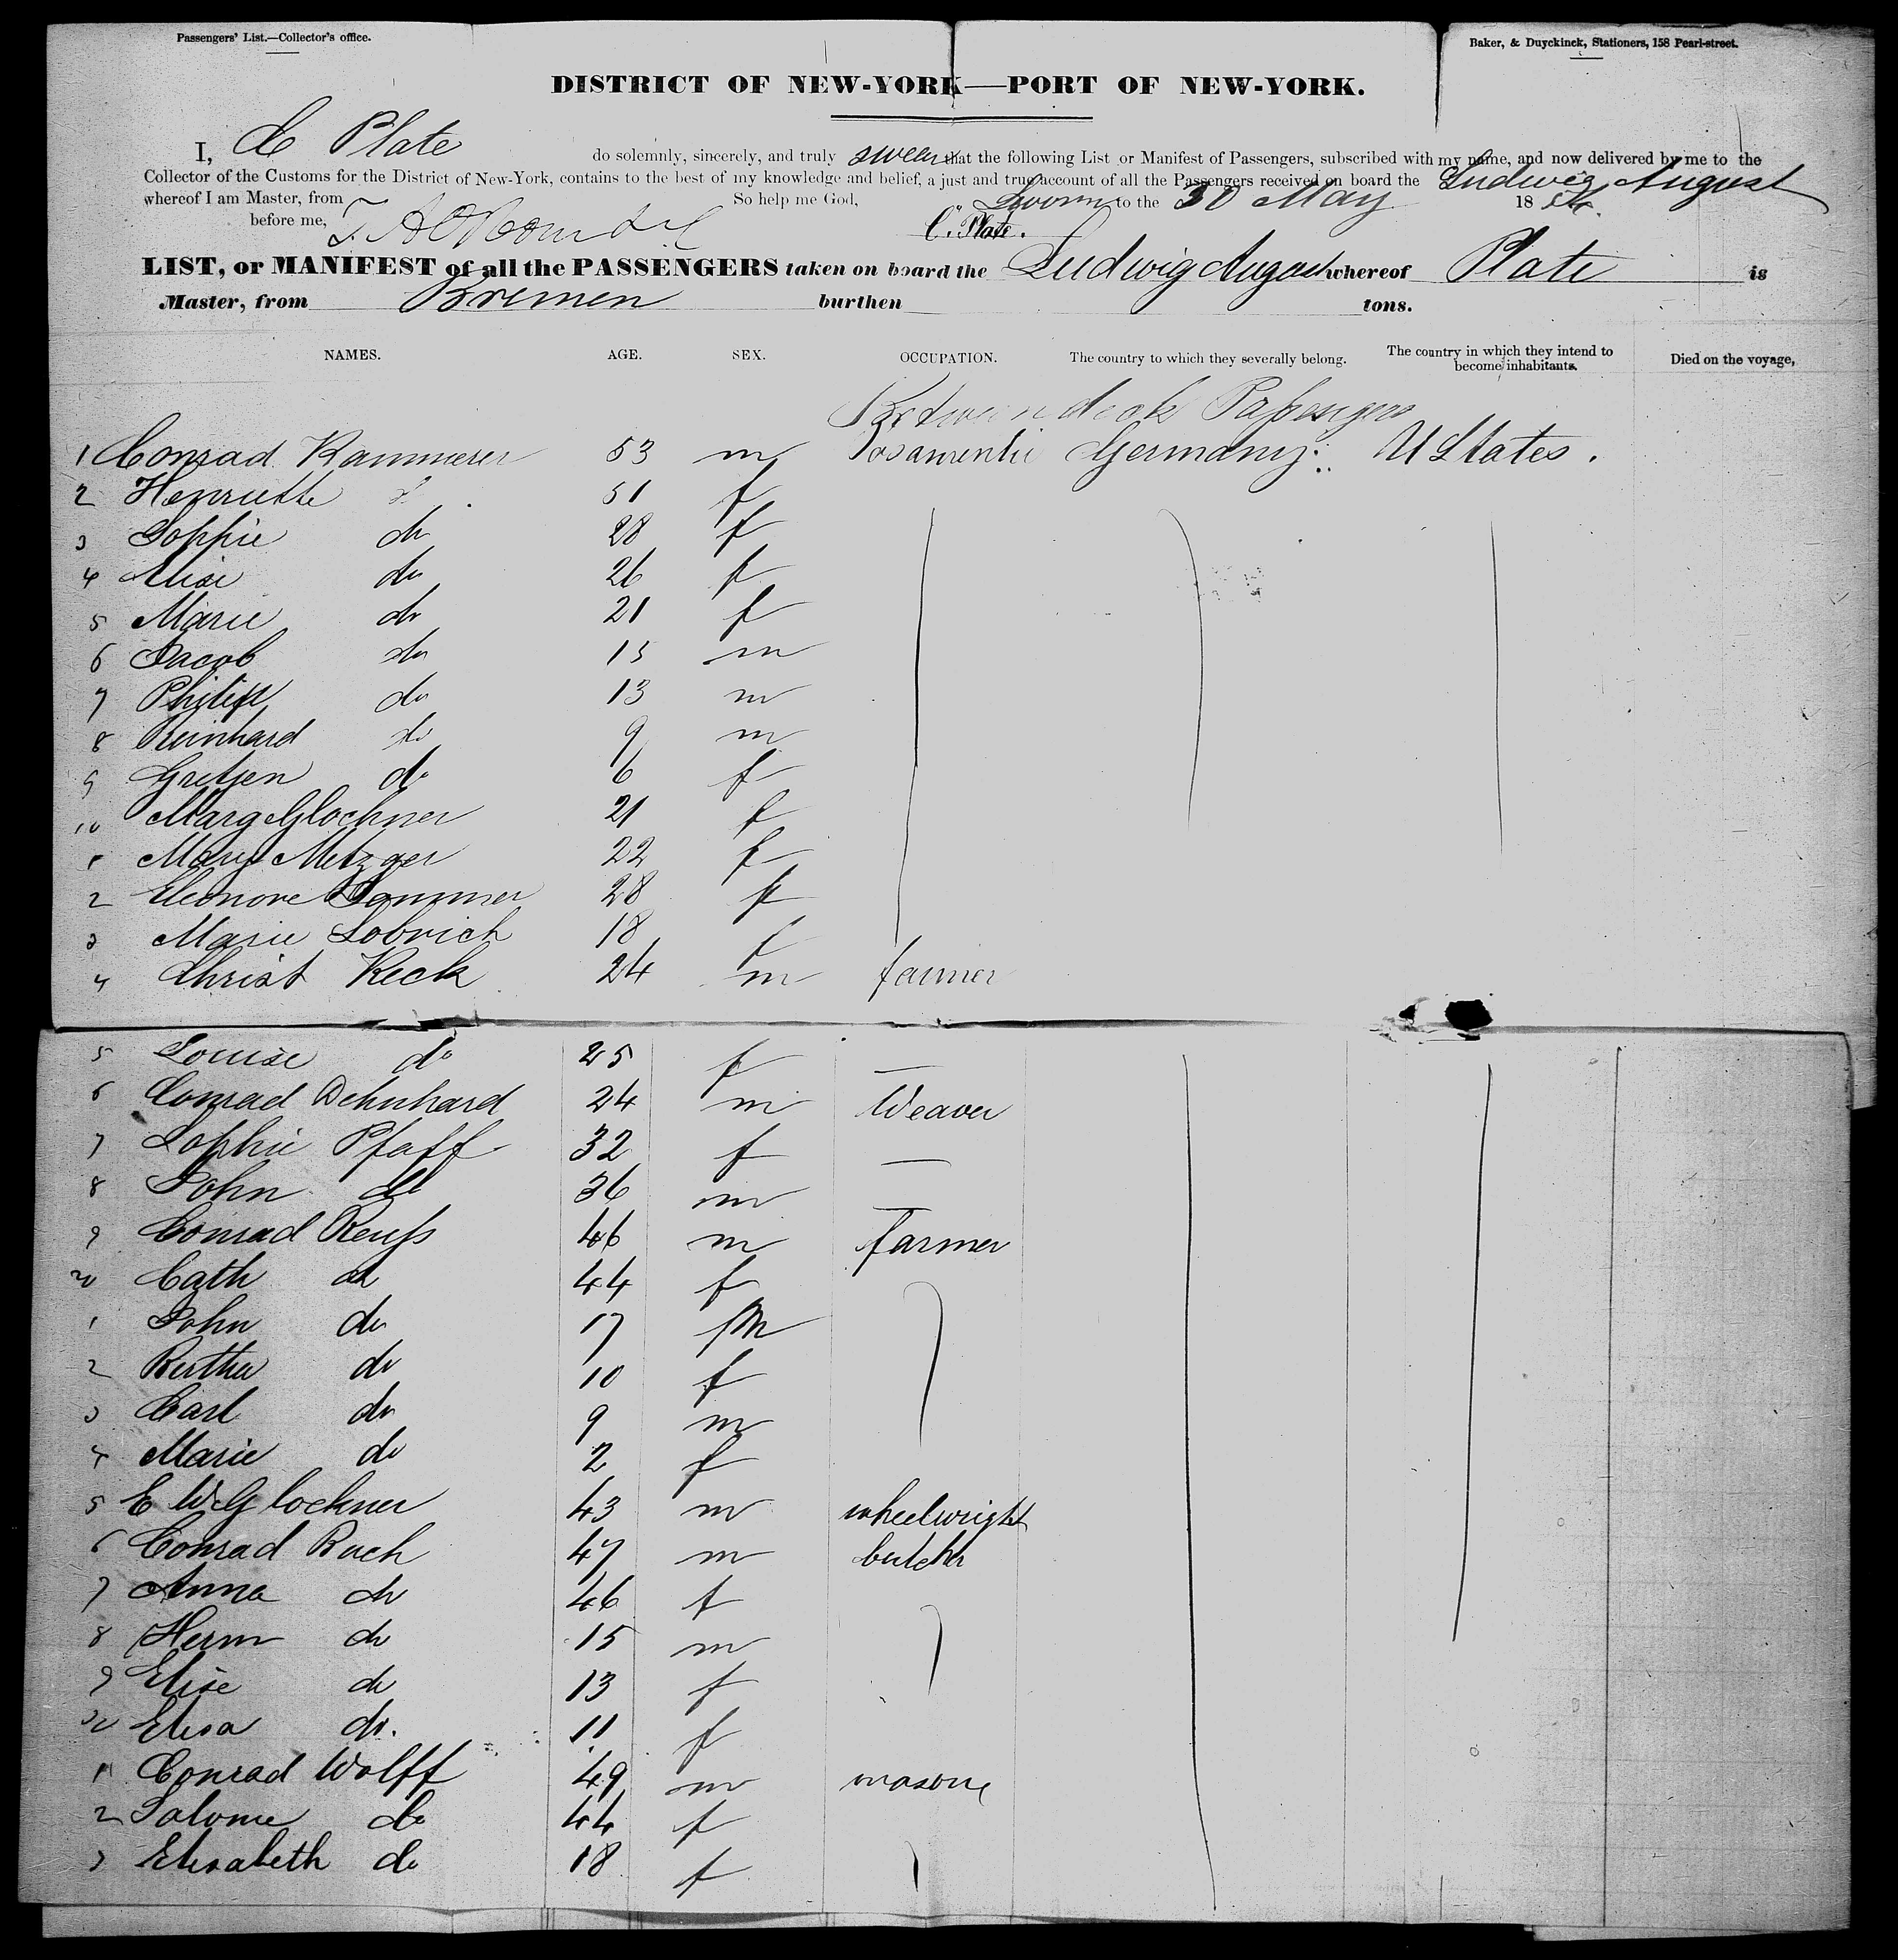 Passengers' List.—Collector's office.
Baker, & Duyckinck, Stationers, 158 Pearl-street.
DISTRICT OF NEW-YORK—PORT OF NEW-YORK.
I, C Plate do solemnly, sincerely, and truly swear that the following List or Manifest of Passengers, subscribed with my name, and now delivered by me to the
Collector of the Customs for the District of New-York, contains to the best of my knowledge and belief, a just and true account of all the Passengers received on board the Ludwig August
whereof I am Master, from So help me God, Sworn to the 30 May 18
before me, C. Plate.
LIST, or MANIFEST of all the PASSENGERS taken on board the Ludwig August whereof Plate is
Master, from Bremen burthen tons.
NAMES. AGE. SEX. OCCUPATION. The country to which they severally belong. The country in which they intend to become inhabitants. Died on the voyage,
Between deck Passengers
1 Conrad Kammerer 53 m Posamentir Germany U States.
2 Henriette do 51 f
3 Sophie do 28 f
4 Elise do 26 f
5 Marie do 21 f
6 Jacob do 15 m
7 Philipp do 13 m
8 Reinhard do 9 m
9 Gretjen do 6 f
10 Marg Glockner 21 f
1 Mary Metzger 22 f
2 Eleonore Sommer 28 f
3 Marie Lobrich 18 f
4 Christ Keck 24 m farmer
5 Louise do 25 f —
6 Conrad Dehnhard 24 m Weaver
7 Sophie Pfaff 32 f —
8 John do 36 m —
9 Conrad Reufs 46 m farmer
20 Cath do 44 f
1 John do 17 m
2 Bertha do 10 f
3 Carl do 9 m
4 Marie do 2 f
5 E W Glockner 43 m wheelwright
6 Conrad Ruch 47 m butcher
7 Anna do 46 f
8 Herm do 15 m
9 Elise do 13 f
30 Elisa do. 11 f
1 Conrad Wolff 49 m mason
2 Salome do 44 f
3 Elisabeth do 18 f